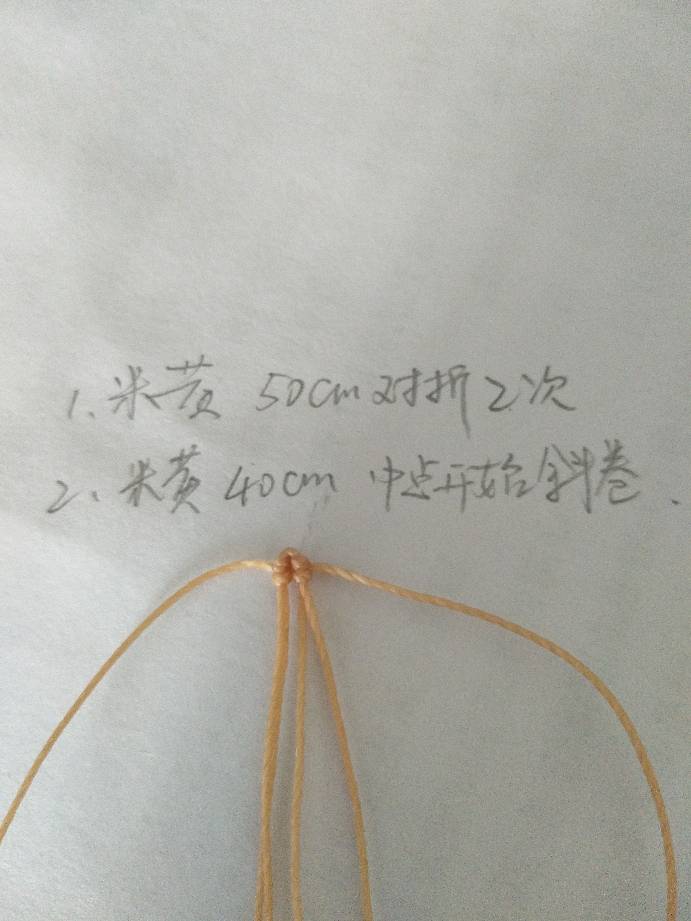 1、米黄 50cm对折2次
2、米黄 40cm 中点开始斜卷.